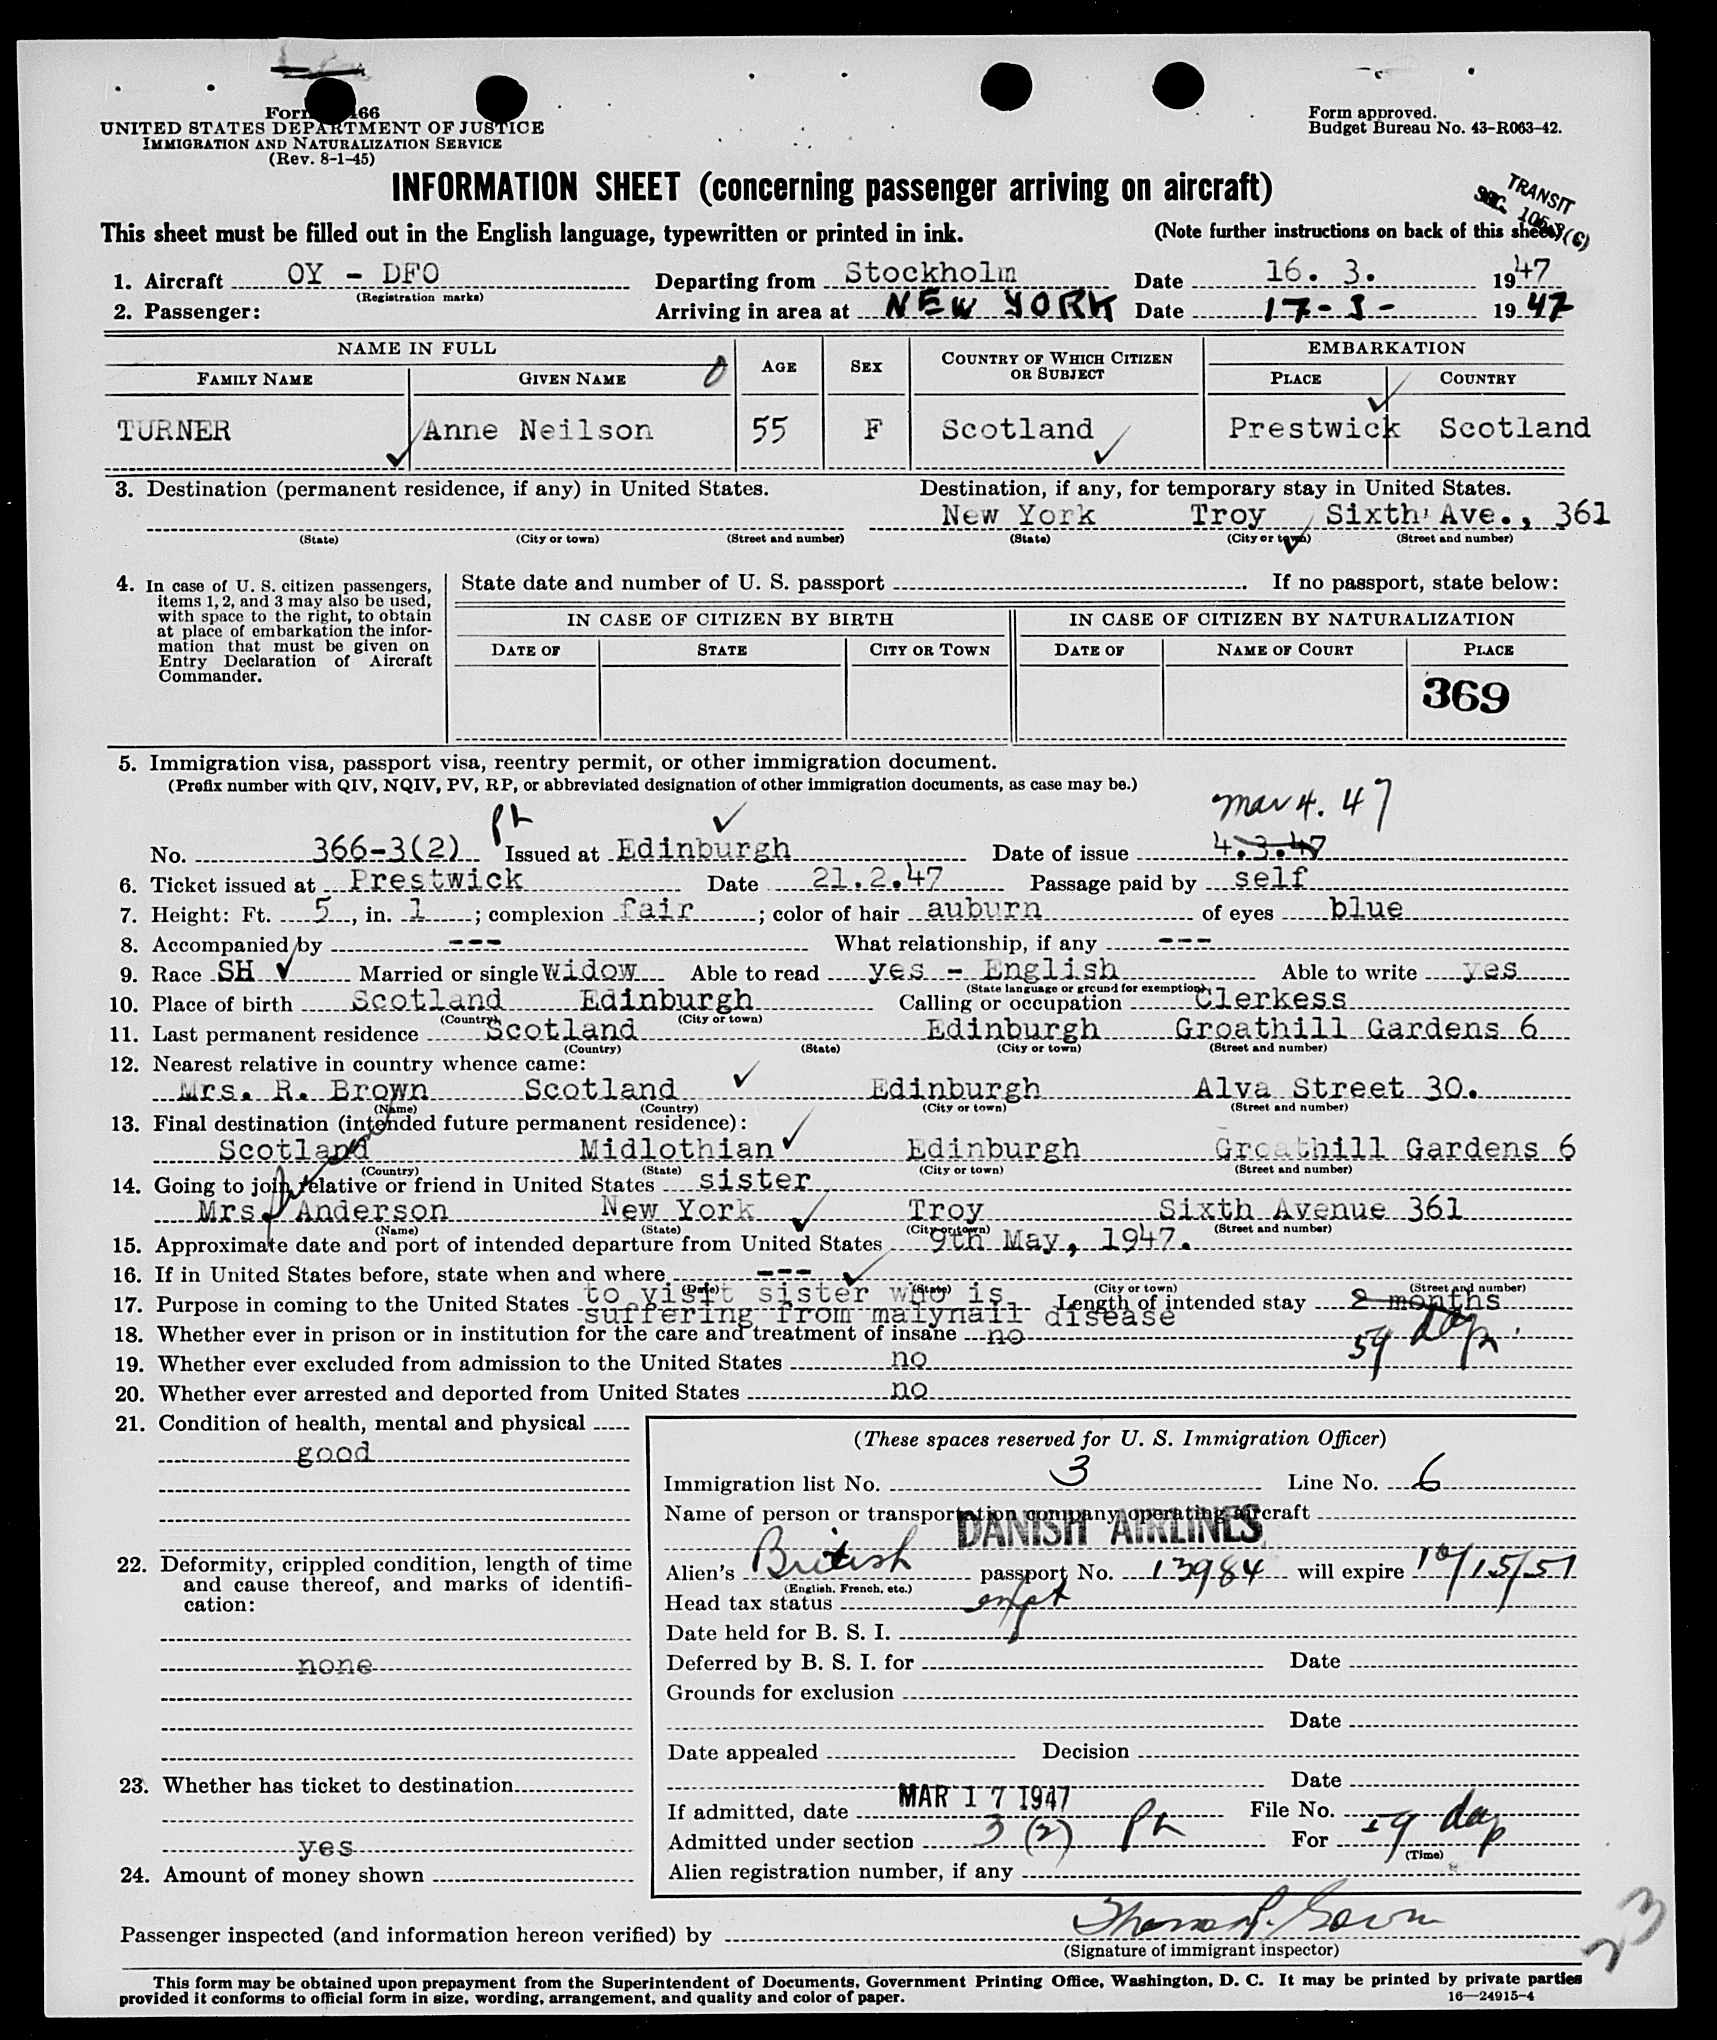 Form 466
UNITED STATES DEPARTMENT OF JUSTICE
IMMIGRATION AND NATURALIZATION SERVICE
(Rev. 8-1-45)
Form approved.
Budget Bureau No. 43-R063-42.
INFORMATION SHEET (concerning passenger arriving on aircraft)
TRANSIT
SEC.
This sheet must be filled out in the English language, typewritten or printed in ink. (Note further instructions on back of this sheet)
1. Aircraft OY - DFO Departing from Stockholm Date 16. 3. 1947
(Registration marks)
2. Passenger: Arriving in area at NEW YORK Date 17-3- 1947
NAME IN FULL AGE SEX COUNTRY OF WHICH CITIZEN OR SUBJECT EMBARKATION
FAMILY NAME GIVEN NAME PLACE COUNTRY
TURNER Anne Neilson 55 F Scotland Prestwick Scotland
3. Destination (permanent residence, if any) in United States. Destination, if any, for temporary stay in United States.
New York Troy Sixth Ave., 361
(State) (City or town) (Street and number) (State) (City or town) (Street and number)
4. In case of U. S. citizen passengers,
items 1, 2, and 3 may also be used,
with space to the right, to obtain
at place of embarkation the infor-
mation that must be given on
Entry Declaration of Aircraft
Commander.
State date and number of U. S. passport If no passport, state below:
IN CASE OF CITIZEN BY BIRTH IN CASE OF CITIZEN BY NATURALIZATION
DATE OF STATE CITY OR TOWN DATE OF NAME OF COURT PLACE
369
5. Immigration visa, passport visa, reentry permit, or other immigration document.
(Prefix number with QIV, NQIV, PV, RP, or abbreviated designation of other immigration documents, as case may be.)
Mar 4. 47
No. 366-3(2) Issued at Edinburgh Date of issue 4.3.47
6. Ticket issued at Prestwick Date 21.2.47 Passage paid by self
7. Height: Ft. 5, in. 1; complexion fair; color of hair auburn of eyes blue
8. Accompanied by --- What relationship, if any ---
9. Race SH Married or single widow Able to read yes - English Able to write yes
(State language or ground for exemption)
10. Place of birth Scotland Edinburgh Calling or occupation Clerkess
(Country) (City or town)
11. Last permanent residence Scotland Edinburgh Groathill Gardens 6
(Country) (State) (City or town) (Street and number)
12. Nearest relative in country whence came:
Mrs. R. Brown Scotland Edinburgh Alva Street 30.
(Name) (Country) (City or town) (Street and number)
13. Final destination (intended future permanent residence):
Scotland Midlothian Edinburgh Groathill Gardens 6
(Country) (State) (City or town) (Street and number)
14. Going to join relative or friend in United States sister
Mrs. Anderson New York Troy Sixth Avenue 361
(Name) (State) (City or town) (Street and number)
15. Approximate date and port of intended departure from United States 9th May, 1947.
16. If in United States before, state when and where ---
(Date) (State) (City or town) (Street and number)
17. Purpose in coming to the United States to visit sister who is Length of intended stay 2 months
suffering from malynail disease
59 days
18. Whether ever in prison or in institution for the care and treatment of insane no
19. Whether ever excluded from admission to the United States no
20. Whether ever arrested and deported from United States no
21. Condition of health, mental and physical
good
22. Deformity, crippled condition, length of time
and cause thereof, and marks of identifi-
cation:
none
23. Whether has ticket to destination
yes
24. Amount of money shown
(These spaces reserved for U. S. Immigration Officer)
Immigration list No. 3 Line No. 6
Name of person or transportation company operating aircraft
DANISH AIRLINES
Alien's British passport No. 13984 will expire 10/15/51
(English, French, etc.)
Head tax status
Date held for B. S. I.
Deferred by B. S. I. for Date
Grounds for exclusion
Date
Date appealed Decision
Date
If admitted, date MAR 17 1947 File No.
Admitted under section 3 (2) For 59 days
(Time)
Alien registration number, if any
Passenger inspected (and information hereon verified) by
(Signature of immigrant inspector)
23
This form may be obtained upon prepayment from the Superintendent of Documents, Government Printing Office, Washington, D. C. It may be printed by private parties
provided it conforms to official form in size, wording, arrangement, and quality and color of paper.
16—24915-4